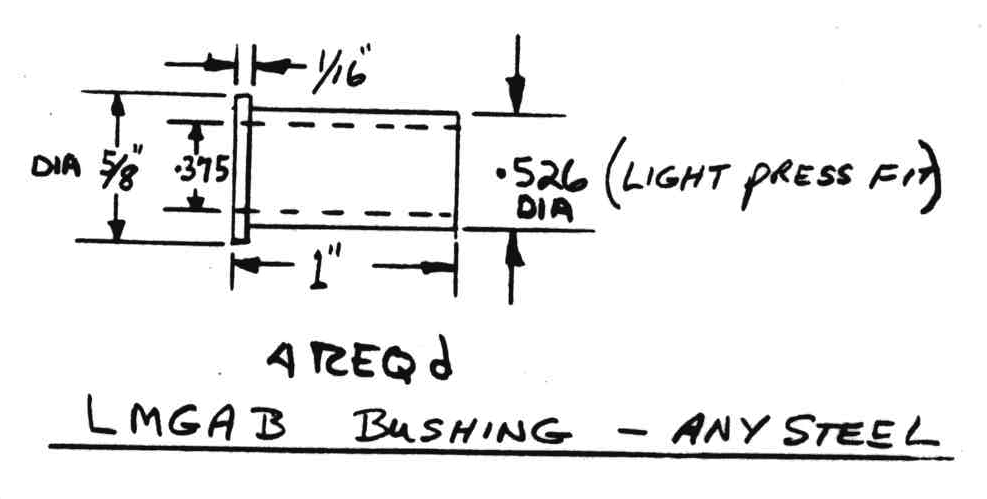 1/16"
DIA 5/8"
.375
.526 (LIGHT PRESS FIT)
DIA
1"
4 REQd
LMGAB BUSHING - ANY STEEL